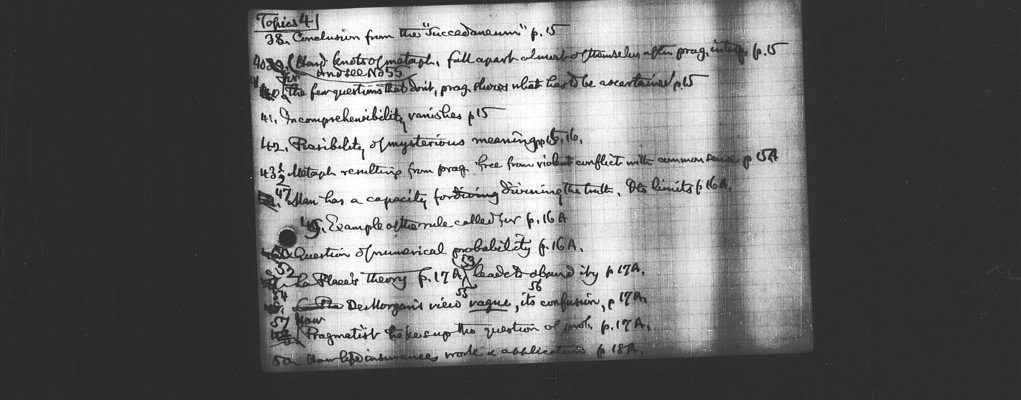 Topics 4
38. Conclusion from the "Succedaneum" p. 15
Hard knots of metaph. fall apart almost of themselves after prag. interp. p. 15
And see No 55
the few questions that don't, prag. shows what has to be ascertained p 15
41. Incomprehensibility vanishes p 15
42. Possibility of mysterious meaning p 15, 16.
43½ Metaph resulting from prag. free from violent conflict with common sense p 15A
47. Man has a capacity for divining the truth. Its limits p 16A.
49. Example of the rule called for p. 16A
50. Question of numerical probability p. 16A.
52 La Place's theory p. 17A 53 leads to absurdity p 17A.
54 De Morgan's view 55 vague, 56 its confusion, p 17A
57 How Pragmatist takes up the question of prob. p. 17A.
50. How life insurances work & applications p 18A.